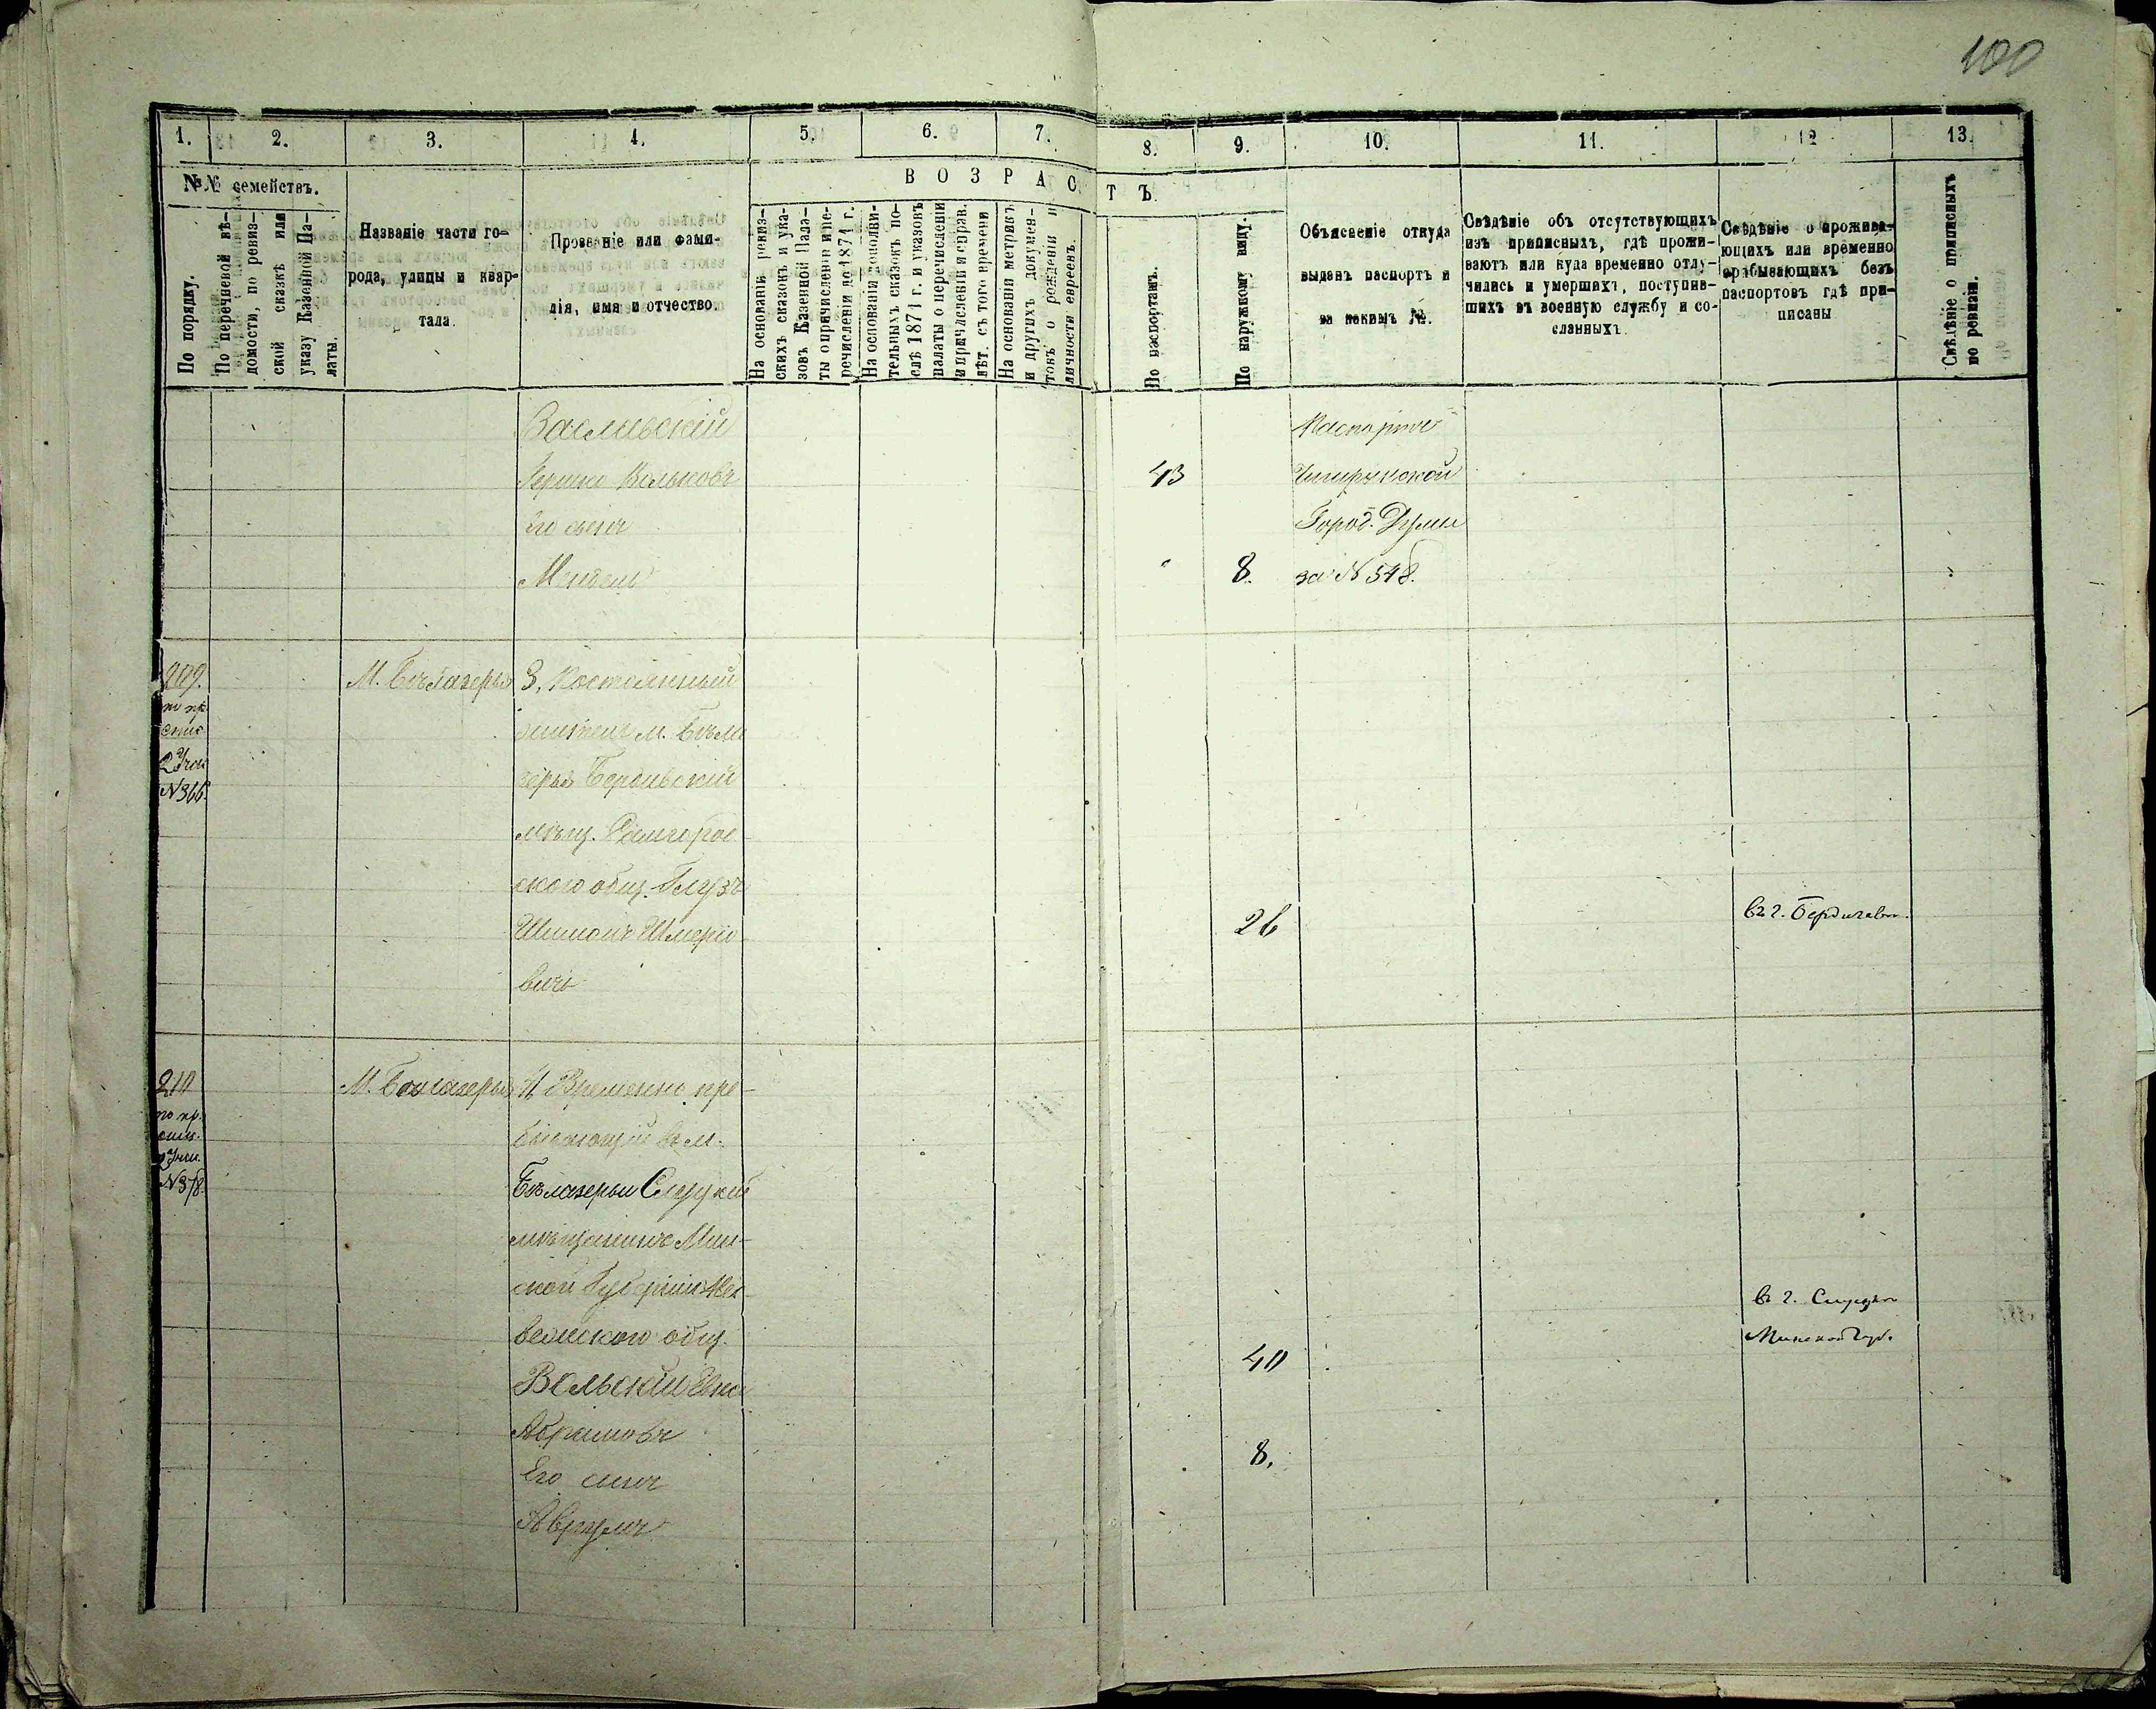 100
1. 2. 3. 4. 5. 6. 7. 8. 9. 10. 11. 12 13.
№№ семействъ.
ВОЗРАСТЪ
По порядку.
По перечневой вѣ-
домости, по ревиз-
ской сказкѣ или
указу Казенной Па-
латы.
Названіе части го-
рода, улицы и квар-
тала.
Прозваніе или фами-
лія, имя и отчество.
На основаніи ревиз-
скихъ сказокъ и ука-
зовъ Казенной Пала-
ты о причисленіи и пе-
речисленіи до 1871 г.
На основаніи дополни-
тельныхъ сказокъ по-
слѣ 1871 г. и указовъ
палаты о перечисленіи
и причисленіи и справ.
лѣт. съ того времени
На основаніи метрикъ
и другихъ докумен-
товъ о рожденіи и
личности евреевъ.
По паспортамъ.
По наружному виду.
Объясненіе откуда
выданъ паспортъ и
за какимъ №.
Свѣдѣніе объ отсутствующихъ
изъ приписныхъ, гдѣ прожи-
ваютъ или куда временно отлу-
чились и умершихъ, поступив-
шихъ въ военную службу и со-
сланныхъ.
Свѣдѣніе о прожива-
ющихъ или временно
прибывающихъ безъ
паспортовъ гдѣ при-
писаны
Свѣдѣніе о приписныхъ
по ревизіи.
Заславскій
Вольковъ 43
его сынъ Город. Думы
Мендель " 8. за № 548.
209. 3. Постоянный
по пр.
спис. житель м. Бѣла
2 Учас
№ 366. зерья Бердичевскій
мѣщ.
ского общ.
Шимонъ Шмеріо- 26 въ г. Бердичевѣ.
вичъ
210 М. Бѣлазерье 4. Временно пре-
по пр.
спис. бывающій въ м.
2 Учас.
№ 378. Бѣлазерьи Слуцкій
мѣщанинъ Мин-
ской Губерніи въ г. Слуцкѣ
общ. Минской Губ.
Вольскій 40
Абрамовъ
Его сынъ 8.
Аврумъ